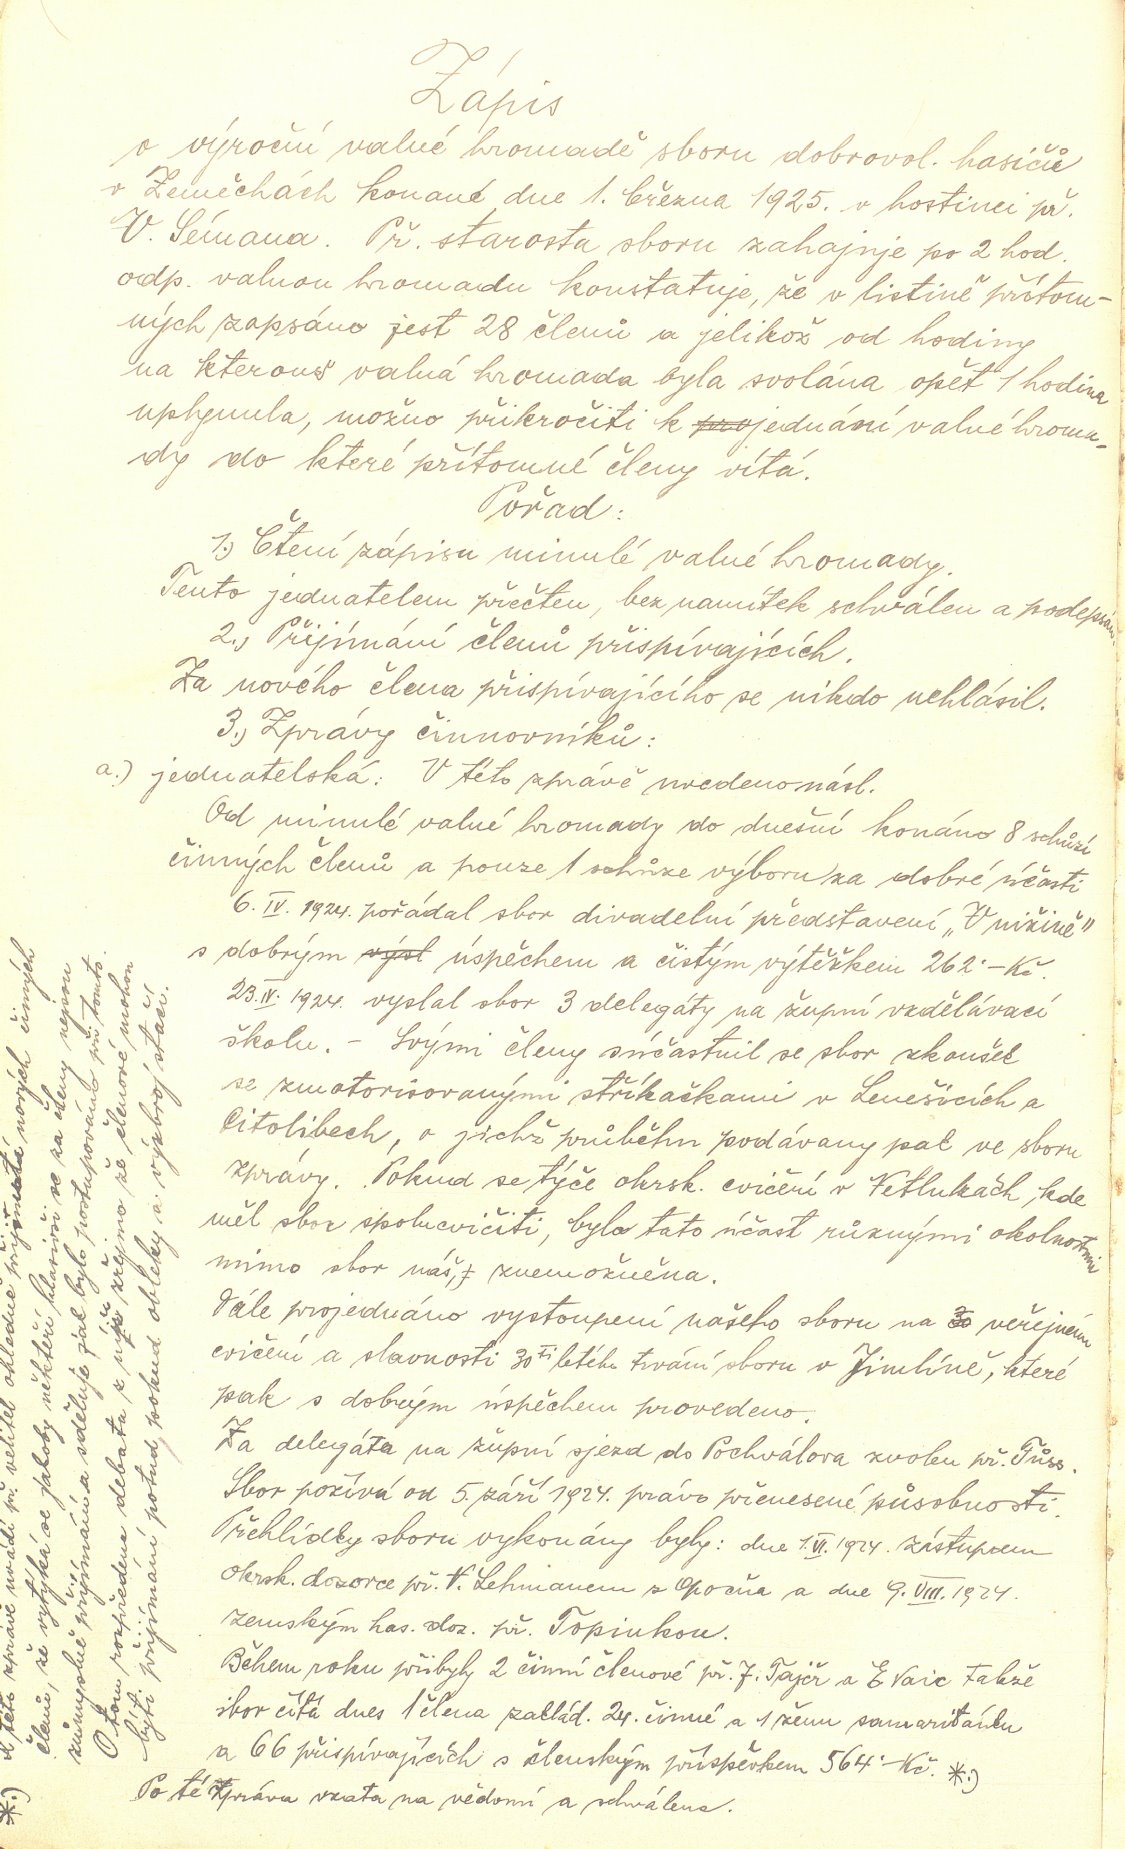 Zápis
o výroční valné hromadě sboru dobrovol. hasičů
v Zeměchách konané dne 1. března 1925. v hostinci př.
V. Sémana. Př. starosta sboru zahajuje po 2 hod.
odp. valnou hromadu konstatuje, že v listině přítom-
ných zapsáno jest 28 členů a jelikož od hodiny
na kterouž valná hromada byla svolána opět 1 hodina
uplynula, možno přikročiti k projednání valné hroma-
dy do které přítomné členy vítá.
Pořad:
1.) Čtení zápisu minulé valné hromady.
Tento jednatelem přečten, bez námitek schválen a podepsán.
2.) Přijímání členů přispívajících.
Za nového člena přispívajícího se nikdo nehlásil.
3.) Zprávy činovníků:
a.) jednatelská: V této zprávě uvedeno násl.
Od minulé valné hromady do dnešní konáno 8 schůzí
činných členů a pouze 1 schůze výboru za dobré účasti
6. IV. 1924. pořádal sbor divadelní představení „V nížině"
s dobrým výsl úspěchem a čistým výtěžkem 262·– Kč.
23. IV. 1924. vyslal sbor 3 delegáty na župní vzdělávací
školu. – Svými členy súčastnil se sbor zkoušek
se zmotorisovanými stříkačkami v Lenešicích a
Citolibech, o jichž průběhu podávány pak ve sboru
zprávy. Pokud se týče okrsk. cvičení v Netlukách, kde
měl sbor spolucvičiti, byla tato účast různými okolnostmi
mimo sbor náš, znemožněna.
Dále projednáno vystoupení našeho sboru na veřejném
cvičení a slavnosti 30ti letého trvání sboru v Jimlíně, které
pak s dobrým úspěchem provedeno.
Za delegáta na župní sjezd do Pochválova zvolen př. Tůss.
Sbor požívá od 5. září 1924. právo přenesené působnosti.
Přehlídky sboru vykonány byly: dne 1. VI. 1924. zástupcem
okrsk. dozorce př. V. Lehmanem z Opočna a dne 9. VIII. 1924.
zemským has. doz. př. Topinkou.
Během roku přibyly 2 činní členové př. J. Tajčr a E Vaic takže
sbor čítá dnes 1 člena zaklád. 24. činné a 1 ženu samaritánku
a 66 přispívajících s členským příspěvkem 564·– Kč. *.)
Po té zpráva vzata na vědomí a schválena.
*.) K této zprávě uvádí př. velitel ohledně přijímání nových činných
členů, že vytýká se jakoby někteří hlásivší se za členy nejsou
úmyslně přijímáni a sděluje jak bylo postupováno při tomto.
O tom rozpředena debata z níž zřejmo že členové mohou
býti přijímáni potud, pokud obleky a výzbroj stačí.